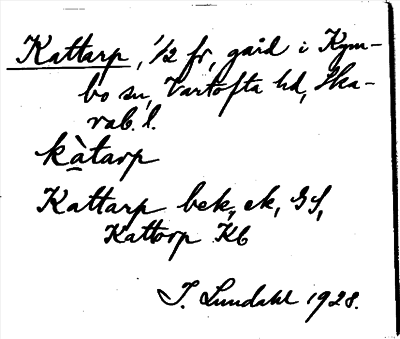 Kattarp, 1/2 fr, gård i Kym-
bo sn, Vartofta hd, Ska-
rab. l.
kàtarp
Kattarp bek, ek, GS,
Kattorp Kb
I. Lundahl 1928.